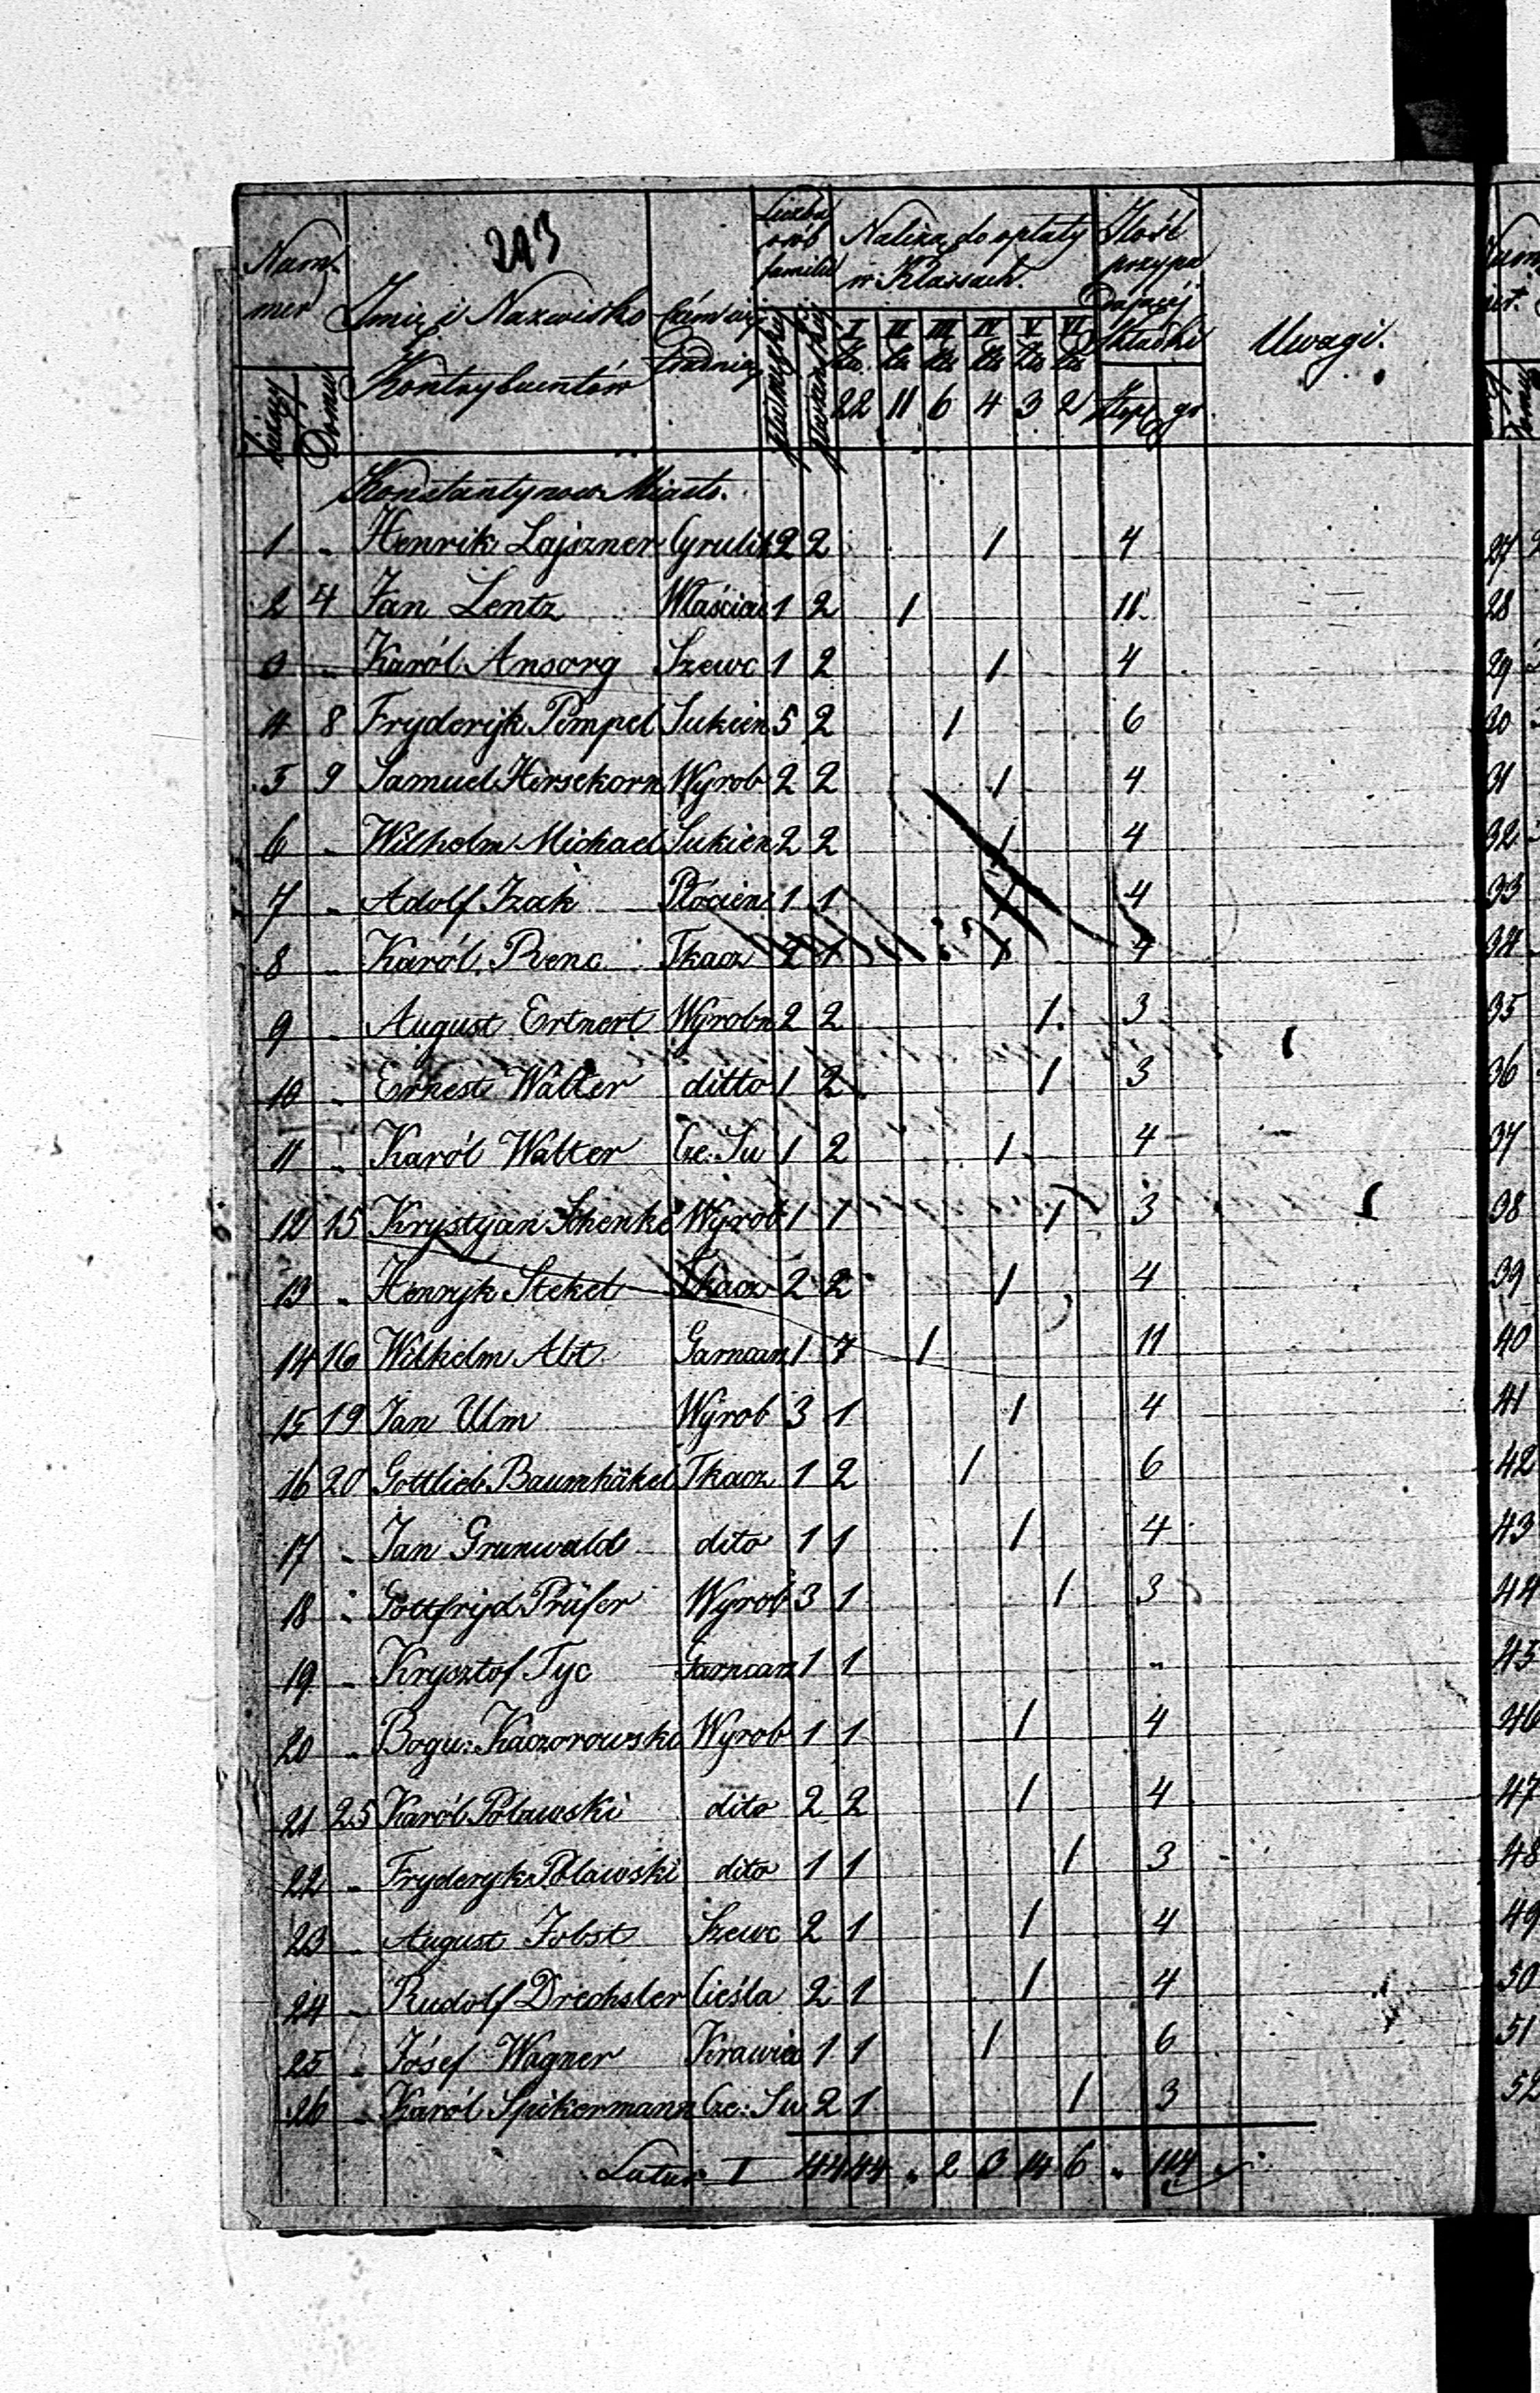 293
Nummer
bieżący Domu
Imię i Nazwisko Kontrybuentów
Czém się trudnią
Liczba osób familii
Należą do opłaty w Klassach.
I 22 II 11 III 6 IV 4 V 3 VI 2
Ilość przypadającéj składki
gr.
Uwagi.
Konstantynow Miasto.
1 " Henrik Lajszner Cyrulik 2 2 1 4
2 4 Jan Lentz Właściciel 1 2 1 11
3 " Karól Ansorg Szewc 1 2 1 4
4 8 Fryderyk Pempel Sukien 5 2 1 6
5 9 Samuel Hersekorn Wyrob 2 2 1 4
6 " Wilhelm Michael Sukien 2 2 1 4
7 " Adolf Izak Płócien 1 1 1 4
8 " Karól Renc Tkacz 2 1 1 4
9 " August Ertnert Wyrobn 2 2 1 3
10 " Ernest Walter ditto 1 2 1 3
11 " Karól Walter Cze: Su 1 2 1 4
12 15 Krystyan Schenke Wyrob 1 1 1 3
13 " Henryk Stekel Tkacz 2 2 1 4
14 16 Wilhelm Abt Garncarz 1 7 1 11
15 19 Jan Ulm Wyrob 3 1 1 4
16 20 Gottlieb Baumhäkel Tkacz 1 2 1 6
17 " Jan Grunwald dito 1 1 1 4
18 " Gottfryd Prüfer Wyrob 3 1 1 3
19 " Krysztof Tyc Garncarz 1 1 "
20 " Bogu: Kaczorowski Wyrob 1 1 1 4
21 25 Karól Polawski dito 2 2 1 4
22 " Fryderyk Polawski dito 1 1 1 3
23 " August Jobst Szewc 2 1 1 4
24 " Rudolf Drechsler Cieśla 2 1 1 4
25 " Jósef Wagner Krawiec 1 1 1 6
26 " Karól Spikermann Cze: Su 2 1 1 3
Latus I 44 44 " 2 3 14 6 " 114
27
28
29
30
31
32
33
34
35
36
37
38
39
40
41
42
43
44
45
46
47
48
49
50
51
52